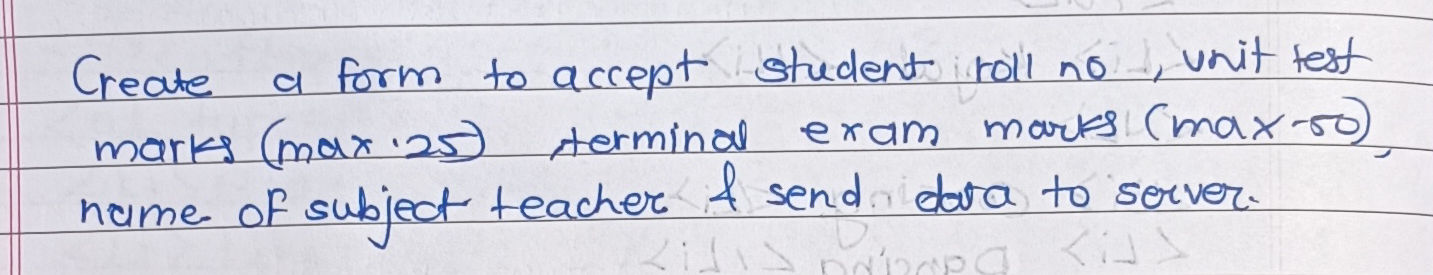 Create a form to accept student roll no , unit test
marks (max.25) terminal exam marks (max-50),
name of subject teacher & send data to server.